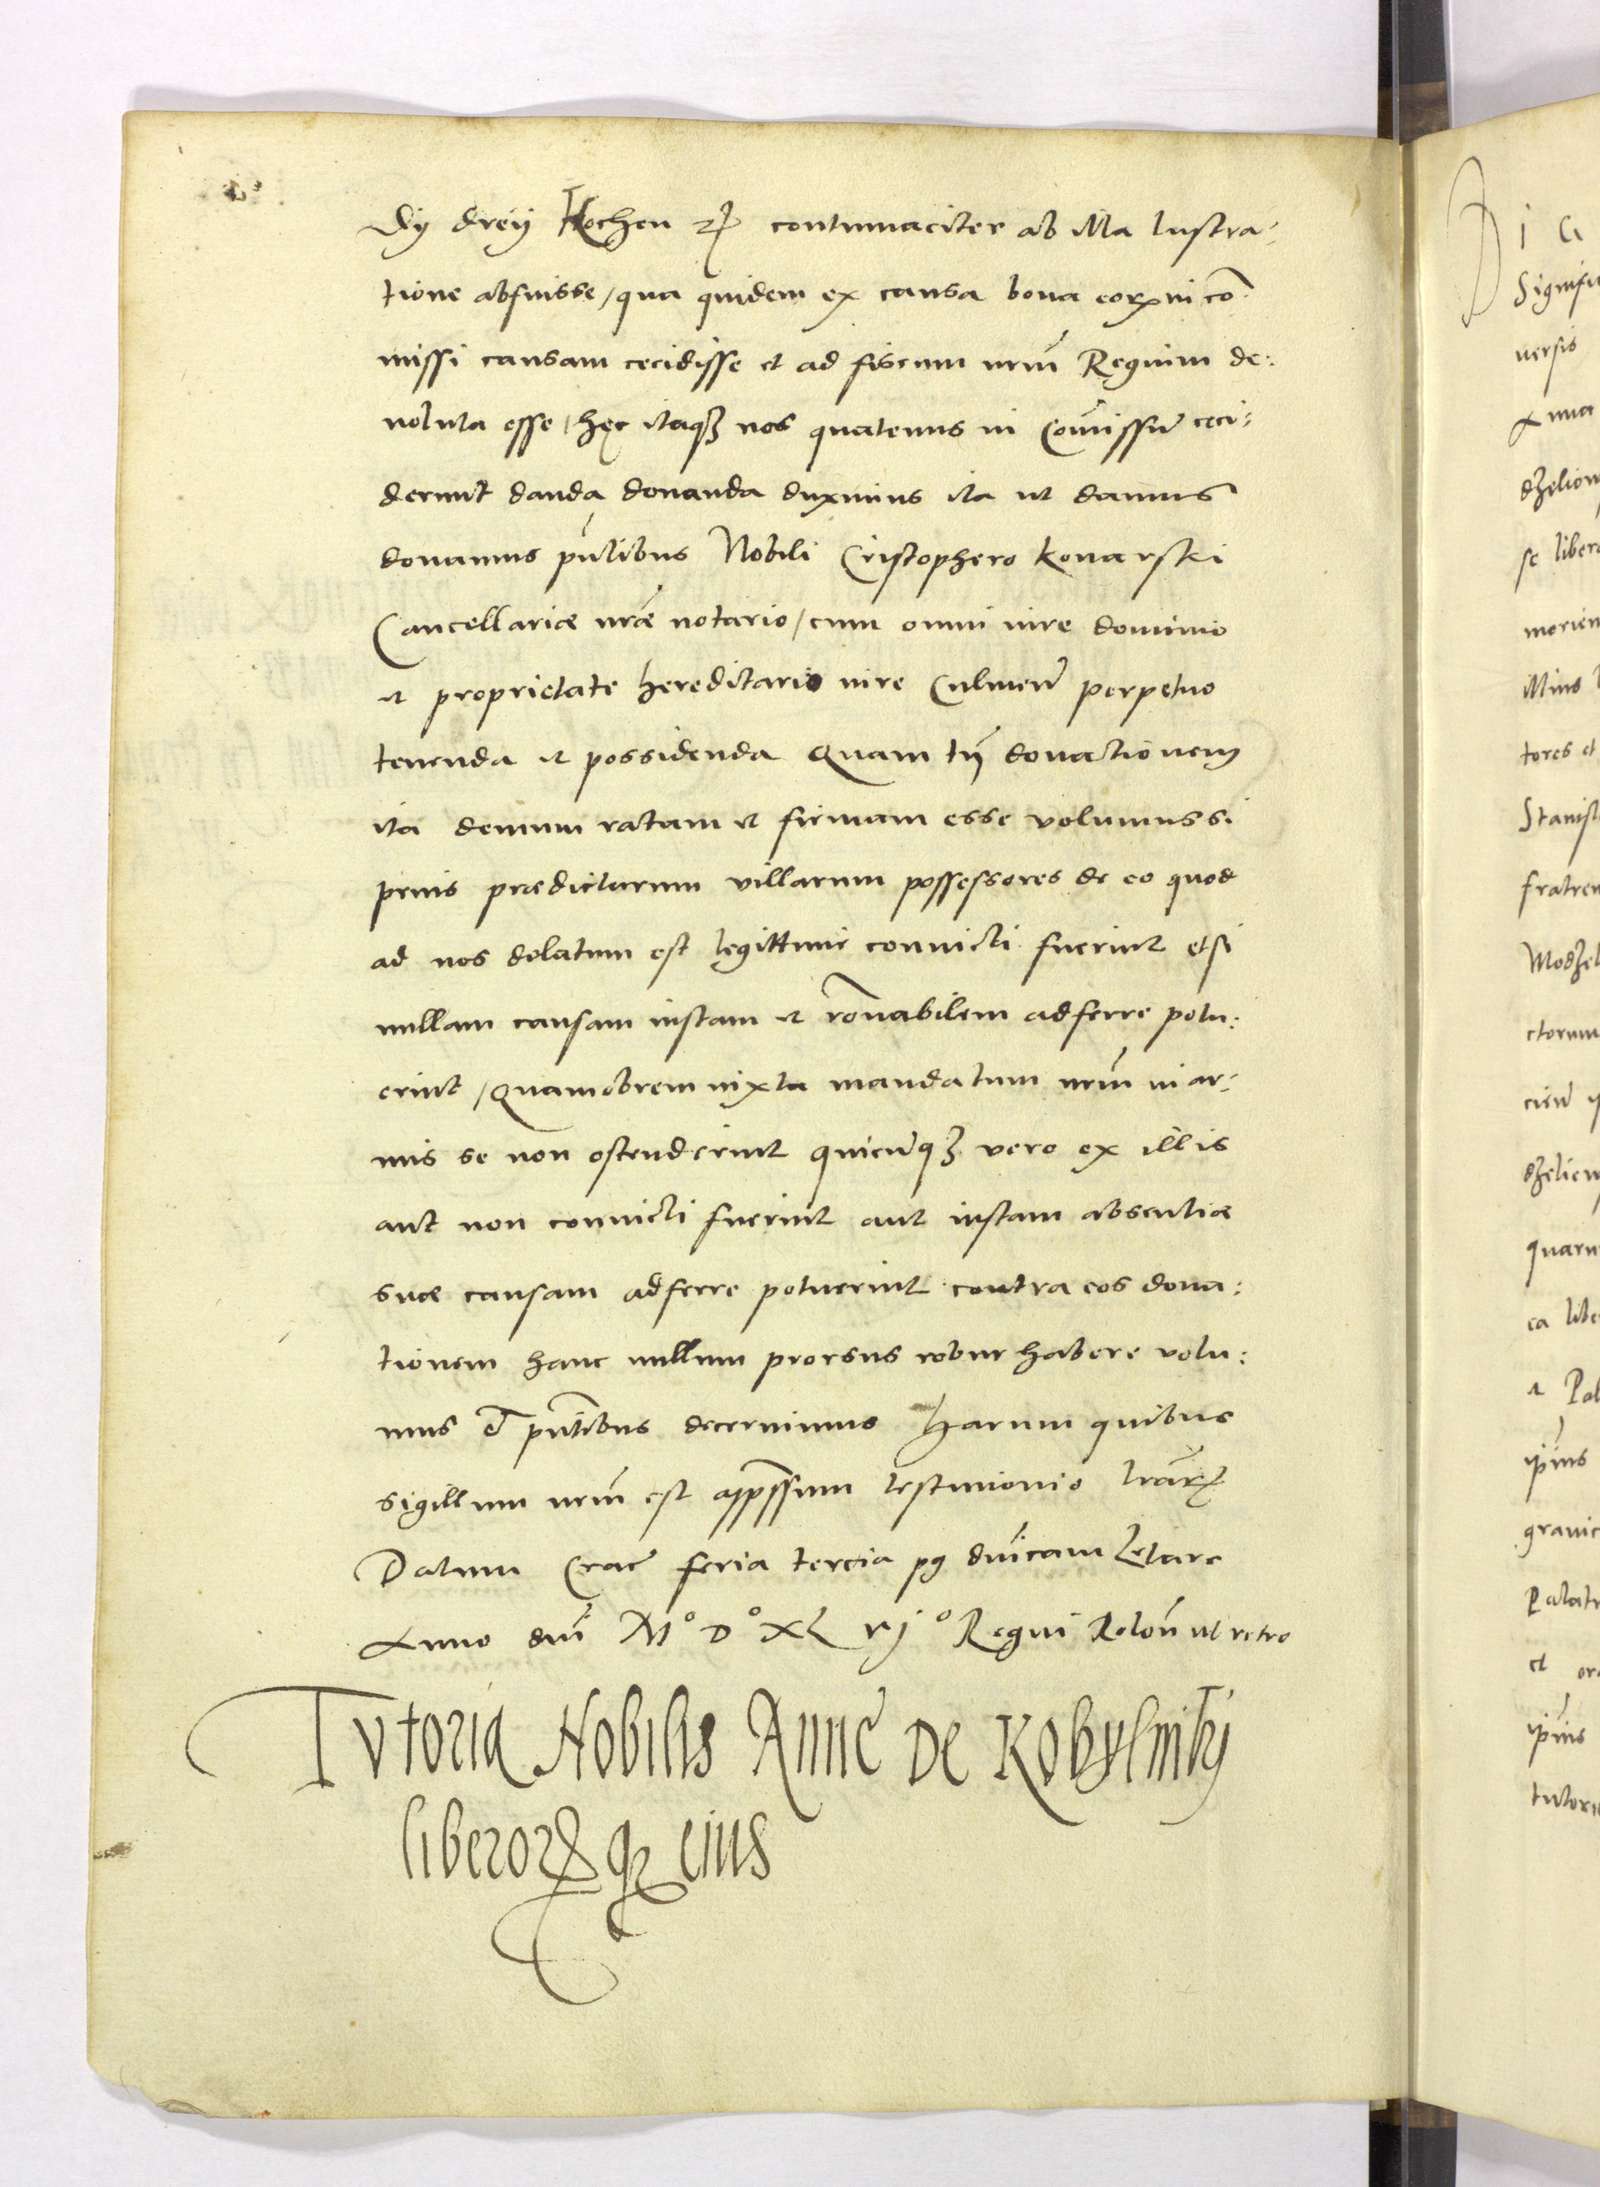 Dÿ dreÿ Kochen etc contumaciter ab illa lustra:
tione abfuisse / qua quidem ex causa bona eorum in co͠
missi causam cecidisse et ad fiscum nrm͠ Regium de:
uoluta esse / hęc itaqꝫ nos quatenus in Com͠issu͠ ceci:
derunt danda donanda duximus ita ut damus
donamus pn͠tibus Nobili Cristophero Konarski
Cancellariæ nræ͠ notario / cum omni iure dominio
et proprietate hereditario iure Culmen͠ perpetuo
tenenda et possidenda Quam tn͠ donationem
ita demum ratam et firmam esse volumus si
prius prædictarum villarum possessores de eo quod
ad nos delatum est legittime conuicti fuerint et si
nullam causam iustam et ro͠nabilem adferre potu:
erint / Quamobrem iuxta mandatum nrm͠ in ar:
mis se non ostenderint quicu͠qꝫ vero ex illis
aut non conuicti fuerint aut iustam absentiæ
suæ causam adferre potuerint contra eos dona:
tionem hanc nullum prorsus robur habere volu:
mus et pn͠tibus decernimus Harum quibus
sigillum nrm͠ est app͠ssum testimonio lr͠arꝝ
Datum Crac͠ feria tercia pꝰ dn͠icam Letare
Anno dn͠i M° D° XL vj° Regni Polon͠ ut retro
Tutoria Nobilis Anne De Kobylniki
liberorꝝ qꝫ eius
D
Signifi
uersis
Anna
dzelion
se liber
morien
illius
tores et
Stanisl
fratrem
Modzel
ctorum
dzelien
quarum
ea libe
et Pal
ip͠ius
grauic
Palati
et
ip͠ius
tutori